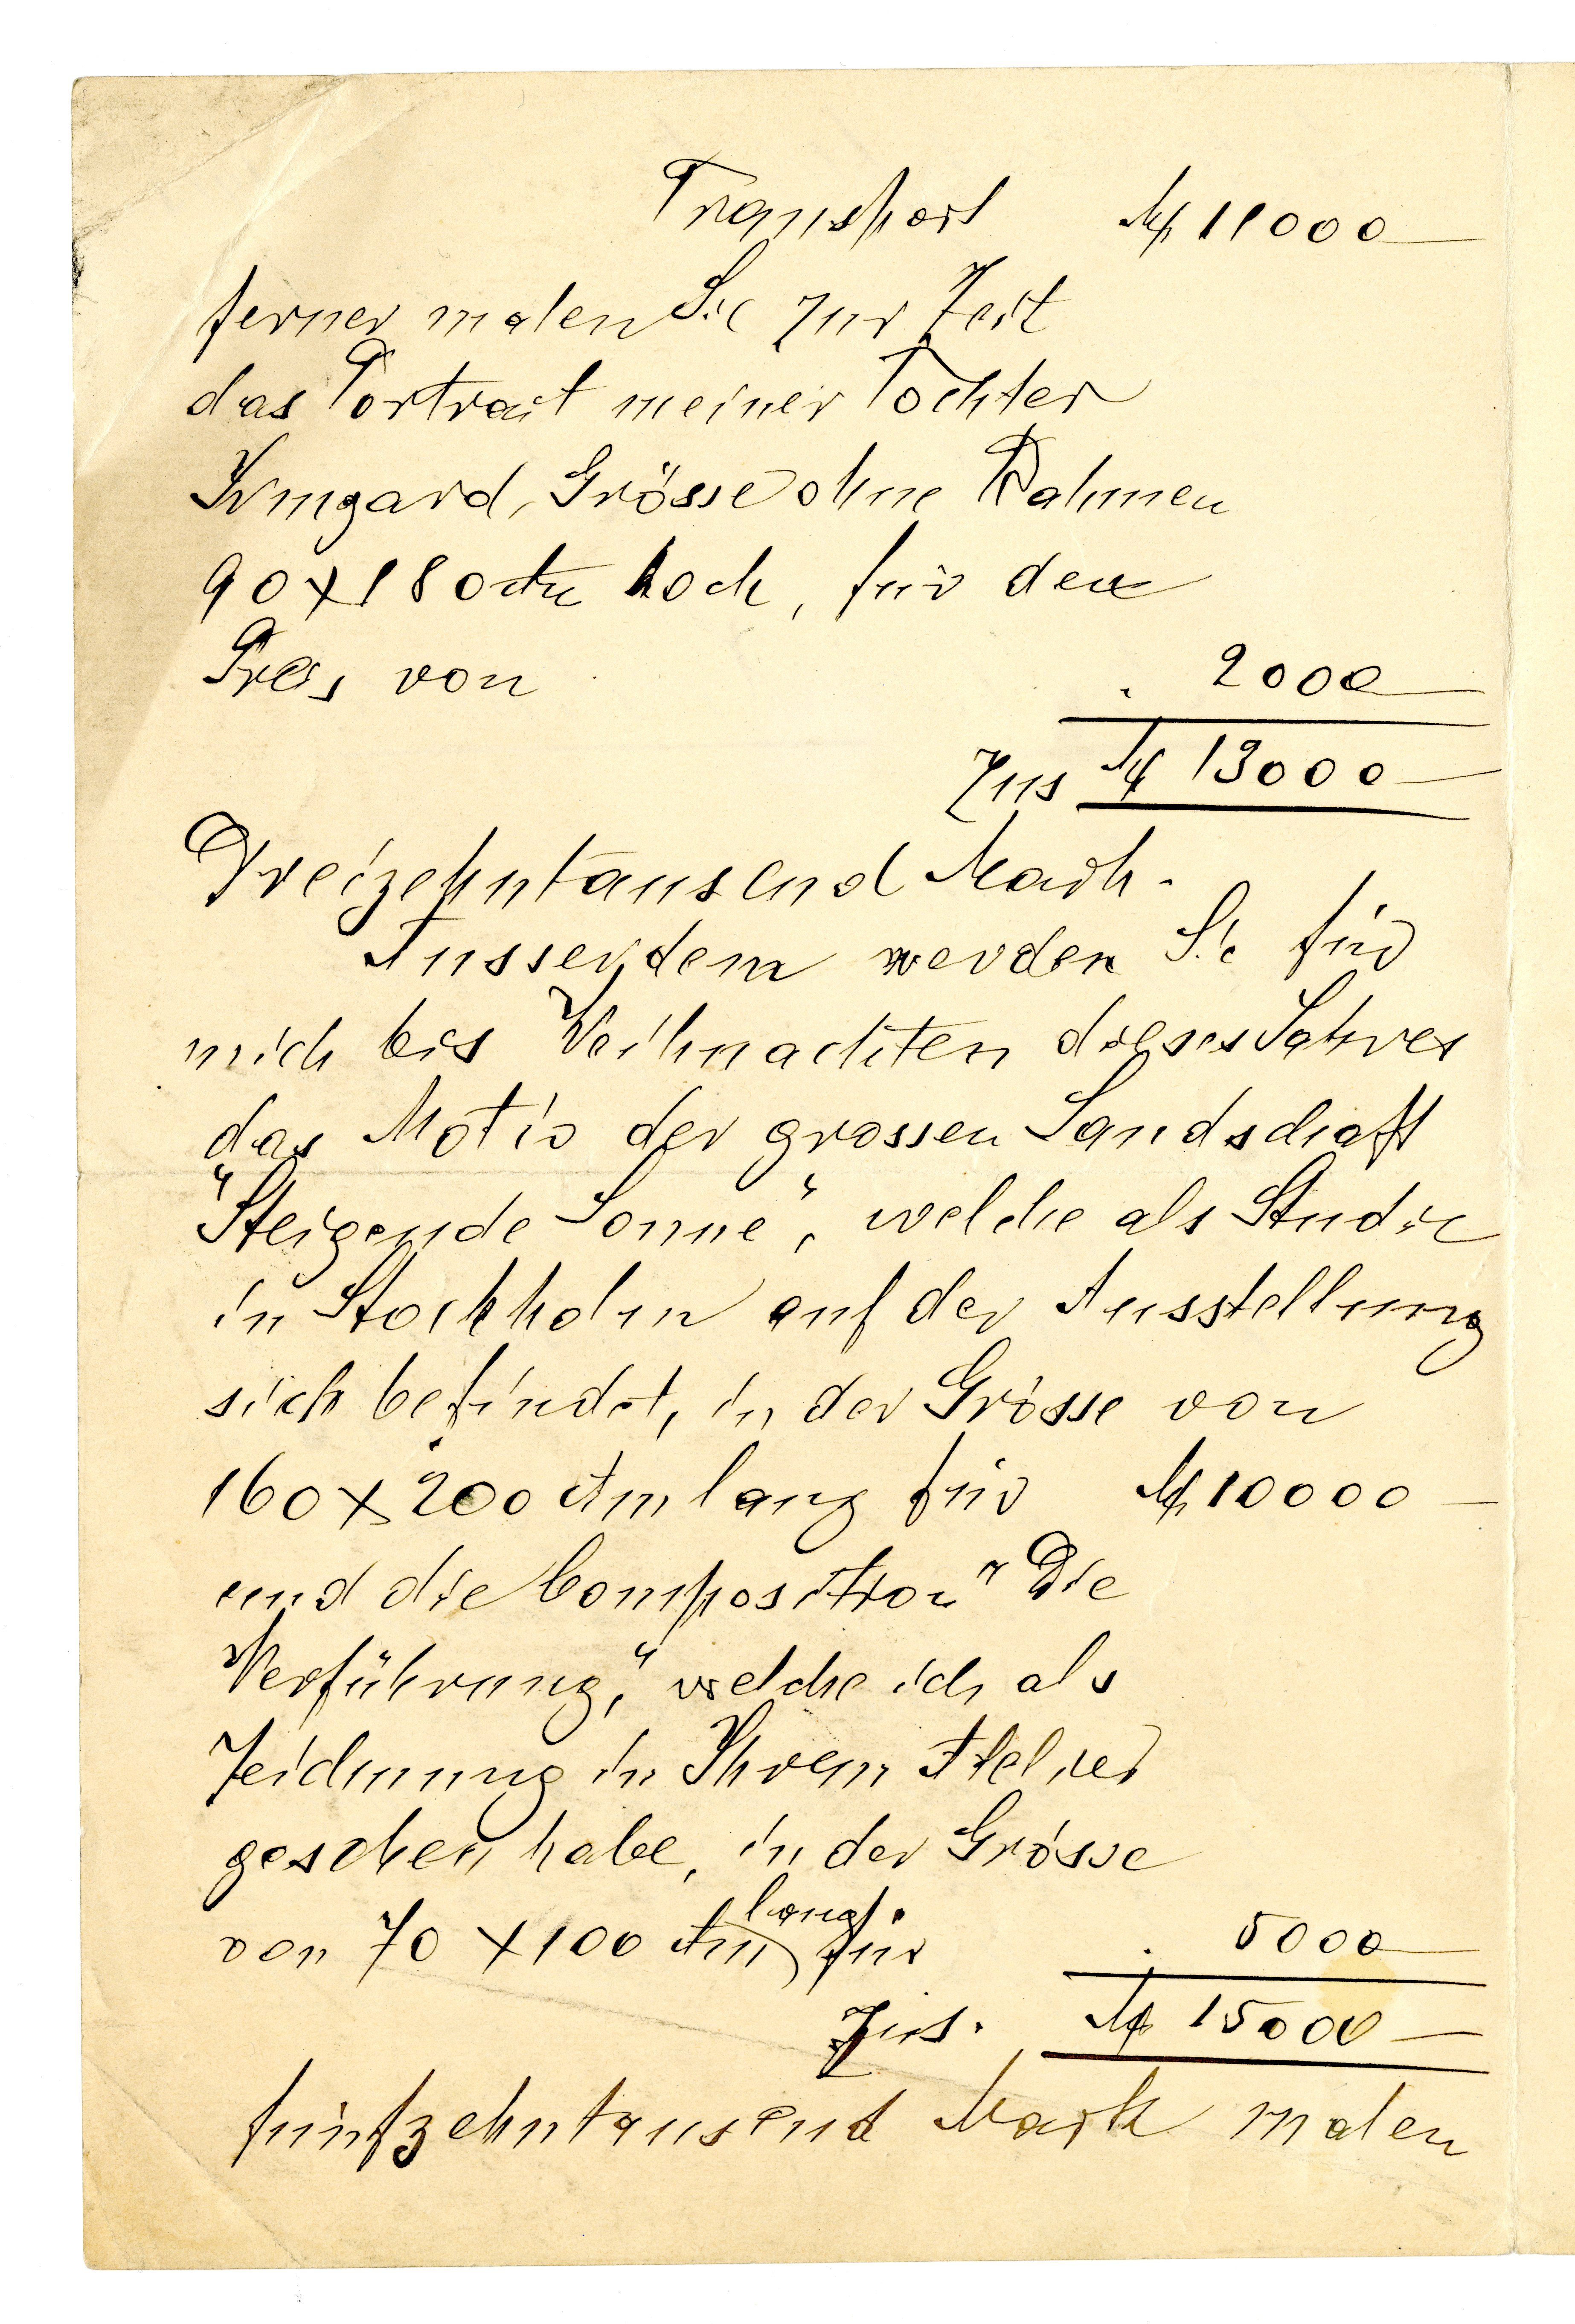 Transport M 11000 —
ferner malen Sie zur Zeit
das Portrait meiner Tochter
Irmgard, Grösse ohne Rahmen
90 x 180 ctm hoch, für den
Preis von . 2000 —
Zus M 13000 —
Dreizehntausend Mark.
Ausserdem werden Sie für
mich bis Weihnachten dieses Jahres
das Motiv der grossen Landschaft
"Steigende Sonne", welche als Studie
in Stockholm auf der Ausstellung
sich befindet, in der Grösse von
160 x 200 ctm lang für M 10000 —
und die Composition "Die
Verführung", welche ich als
Zeichnung in Ihrem Atelier
gesehen habe, in der Grösse
von 70 x 100 ctm lang für . 5000 —
Zus. M 15000 —
fünfzehntausend Mark malen